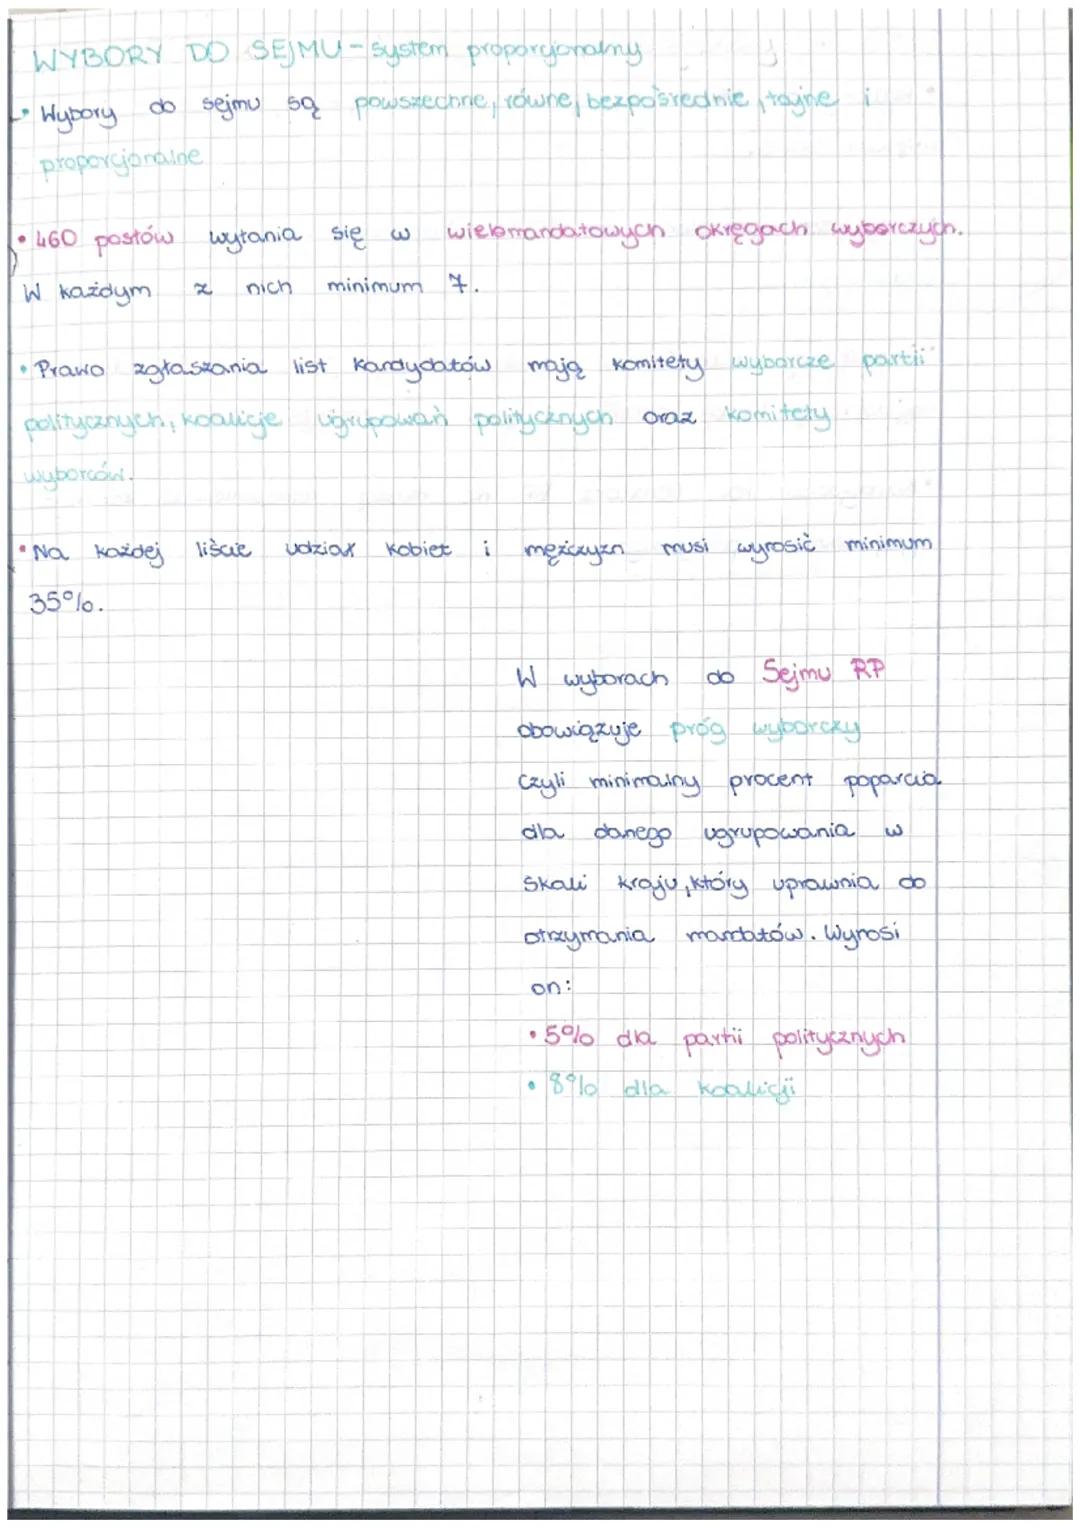 WYBORY DO SEJMU - system proporcjonalny
• Wybory do sejmu są powszechne, równe, bezpośrednie, tajne i
proporcjonalne
• 460 posłów wyłania się w wielomandatowych okręgach wyborczych.
W każdym z nich minimum 7.
• Prawo zgłaszania list kandydatów mają komitety wyborcze partii
politycznych, koalicje ugrupowań politycznych oraz komitety
wyborców.
• Na każdej liście udział kobiet i mężczyzn musi wynosić minimum
35%.
W wyborach do Sejmu RP
obowiązuje próg wyborczy
czyli minimalny procent poparcia
dla danego ugrupowania w
skali kraju, który uprawnia do
otrzymania mandatów. Wynosi
on:
• 5% dla partii politycznych
• 8% dla koalicji